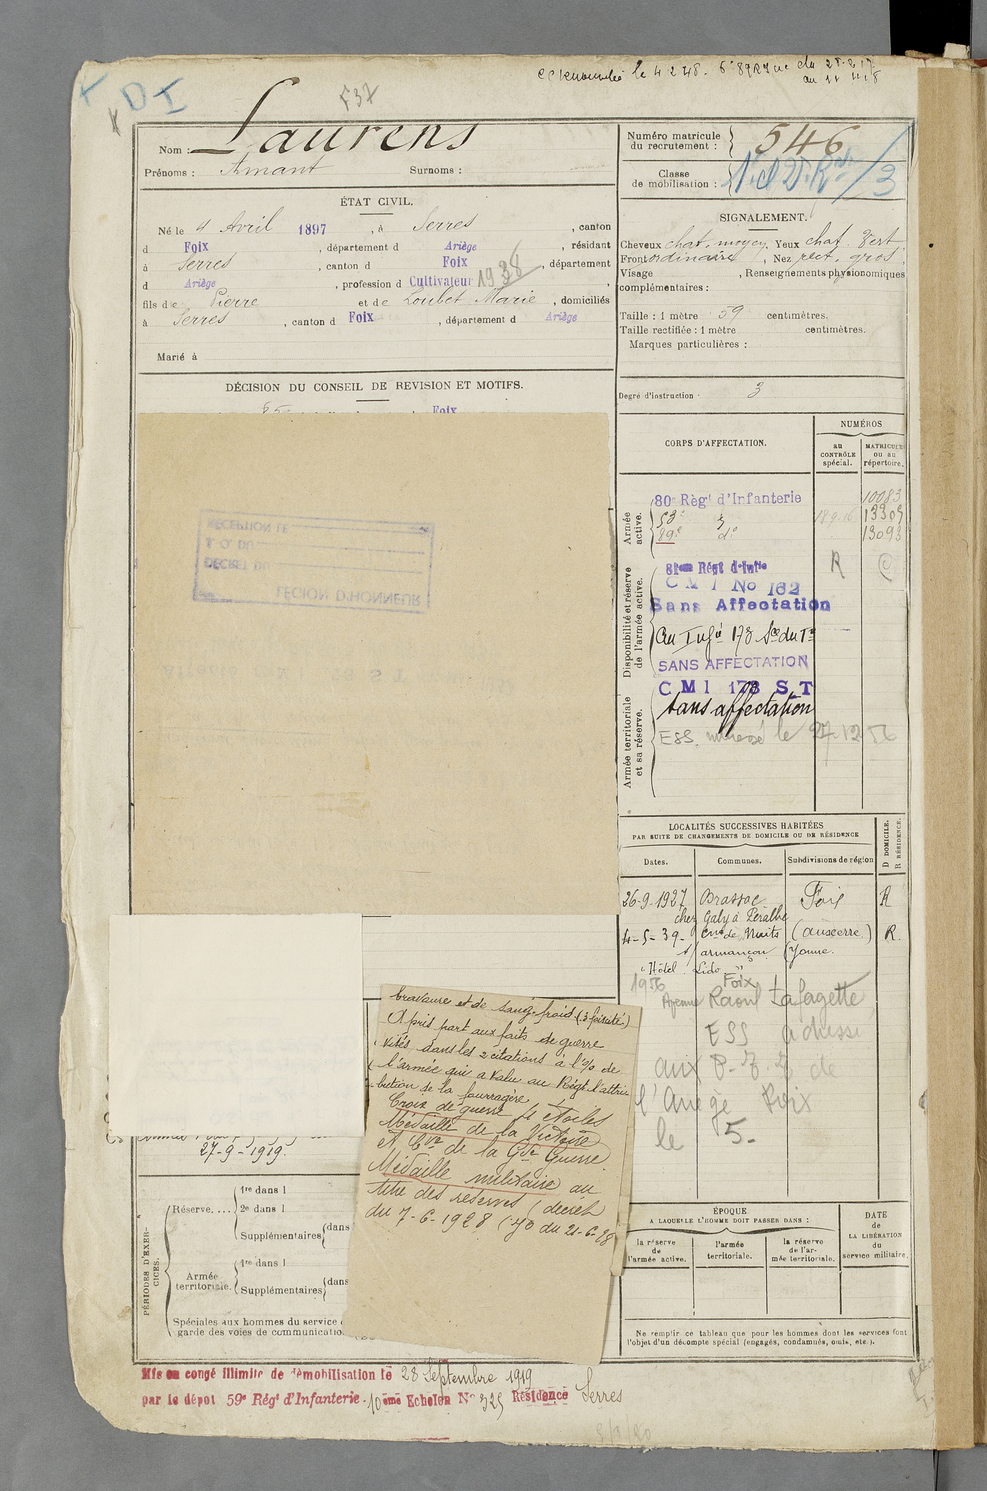 le 4 2 48. 
au 11
F37
D I
Nom : Laurens
Prénoms : Amant Surnoms :
ÉTAT CIVIL.
Né le 4 Avril 1897, à Serres, canton
d Foix, département d Ariège, résidant
à Serres, canton d Foix, département
d Ariège, profession d Cultivateur 1938,
fils de Pierre et de Loubet Marie, domiciliés
à Serres, canton d Foix, département d Ariège
Marié à
DÉCISION DU CONSEIL DE REVISION ET MOTIFS.
Foix
RÉCEPTION LE
T. O. DU
DÉCRET DU
LÉGION D'HONNEUR
27-9-1919.
bravoure et de sang-froid (3 fois cité)
A pris part aux faits de guerre
cités dans les 2 citations à l'% de
l'armée qui a valu au Régt l'attri-
bution de la fourragère.
Croix de guerre 4 étoiles
Médaille de la Victoire
et Cve de la Gde Guerre
Médaille militaire au
titre des réserves (décret
du 7-6-1928 (JO du 21-6-28)
PÉRIODES D'EXERCICES.
Réserve....
1re dans l
2e dans l
Supplémentaires (dans
Armée territoriale.
1re dans l
Supplémentaires (dans
Spéciales aux hommes du service
garde des voies de communicatio
Mis en congé illimité de démobilisation le 28 Septembre 1919
par le dépôt 59e Régt d'Infanterie 10ème Echelon N° 325 Résidence Serres
Numéro matricule
du recrutement : 546
Classe
de mobilisation :
SIGNALEMENT.
Cheveux chat. moyen, Yeux chat. vert,
Front ordinaire, Nez rect. gros,
Visage , Renseignements physionomiques
complémentaires :
Taille : 1 mètre 59 centimètres.
Taille rectifiée : 1 mètre centimètres.
Marques particulières :
Degré d'instruction : 3
CORPS D'AFFECTATION.
NUMÉROS
au
CONTRÔLE
spécial.
MATRICULE
ou au
répertoire.
Armée
active.
80e Régt d'Infanterie 10083
53e 13309
89e do 13093
Disponibilité et réserve
de l'armée active.
81me Régt d'Infie R
C M I No 162
Sans Affectation
SANS AFFECTATION
C M I 178 S T
Armée territoriale
et sa réserve.
sans affectation
ESS le 27.12 56
LOCALITÉS SUCCESSIVES HABITÉES
PAR SUITE DE CHANGEMENTS DE DOMICILE OU DE RÉSIDENCE
Dates.
Communes.
Subdivisions de région
D DOMICILE.
R RÉSIDENCE.
26-9-1927 Brassac Foix R
chez Galy à Péralbe
4-5-39- Cne de Nuits (auxerre) R.
s/ armançon (Yonne.
"Hôtel Lido"
1956 Foix
Avenue Raoul Lafagette
ESS adressé
aux P. de
l'Ariège Foix
le 5-
ÉPOQUE
A LAQUELLE L'HOMME DOIT PASSER DANS :
la réserve
de
l'armée active.
l'armée
territoriale.
la réserve
de l'ar-
mée territoriale.
DATE
de
LA LIBÉRATION
du
service militaire.
Ne remplir ce tableau que pour les hommes dont les services font
l'objet d'un décompte spécial (engagés, condamnés, omis, etc.).